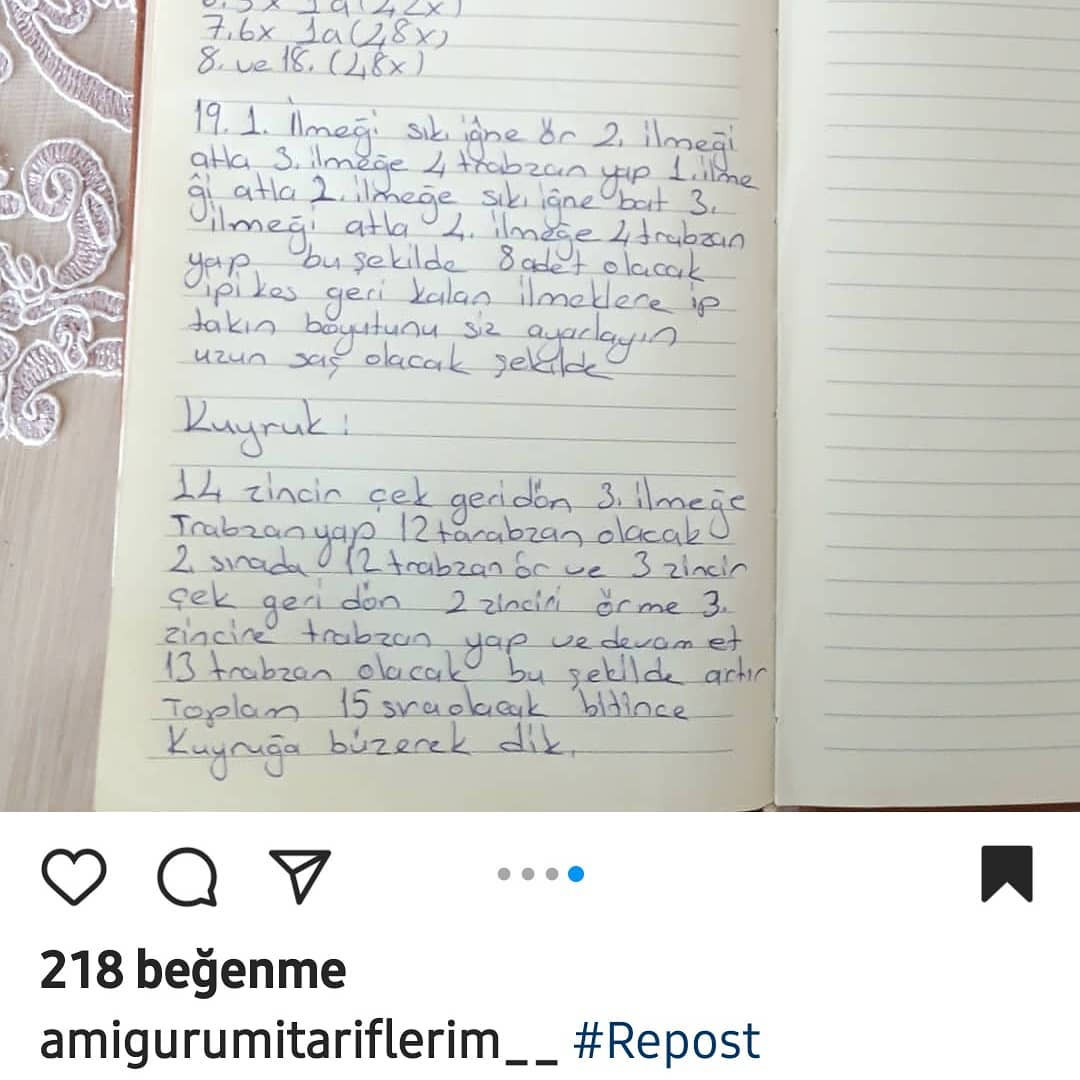 7. 6x 1a (48x)
8. ve 18. (48x)
19. 1. İlmeği sık iğne ör 2. ilmeği
atla 3. ilmeğe 4 trabzan yap 1. ilme
ği atla 2. ilmeğe sık iğne bat 3.
ilmeği atla 4. ilmeğe 4 trabzan
yap bu şekilde 8 adet olacak
ipi kes geri kalan ilmeklere ip
takın boyutunu siz ayarlayın
uzun saç olacak şekilde
Kuyruk:
14 zincir çek geri dön 3. ilmeğe
Trabzan yap 12 tarabzan olacak
2. sırada 12 trabzan ör ve 3 zincir
çek geri dön 2 zinciri örme 3.
zincire trabzan yap ve devam et
13 trabzan olacak bu şekilde artır
Toplam 15 sıra olacak bitince
Kuyruğa büzerek dik.
218 beğenme
amigurumitariflerim__ #Repost